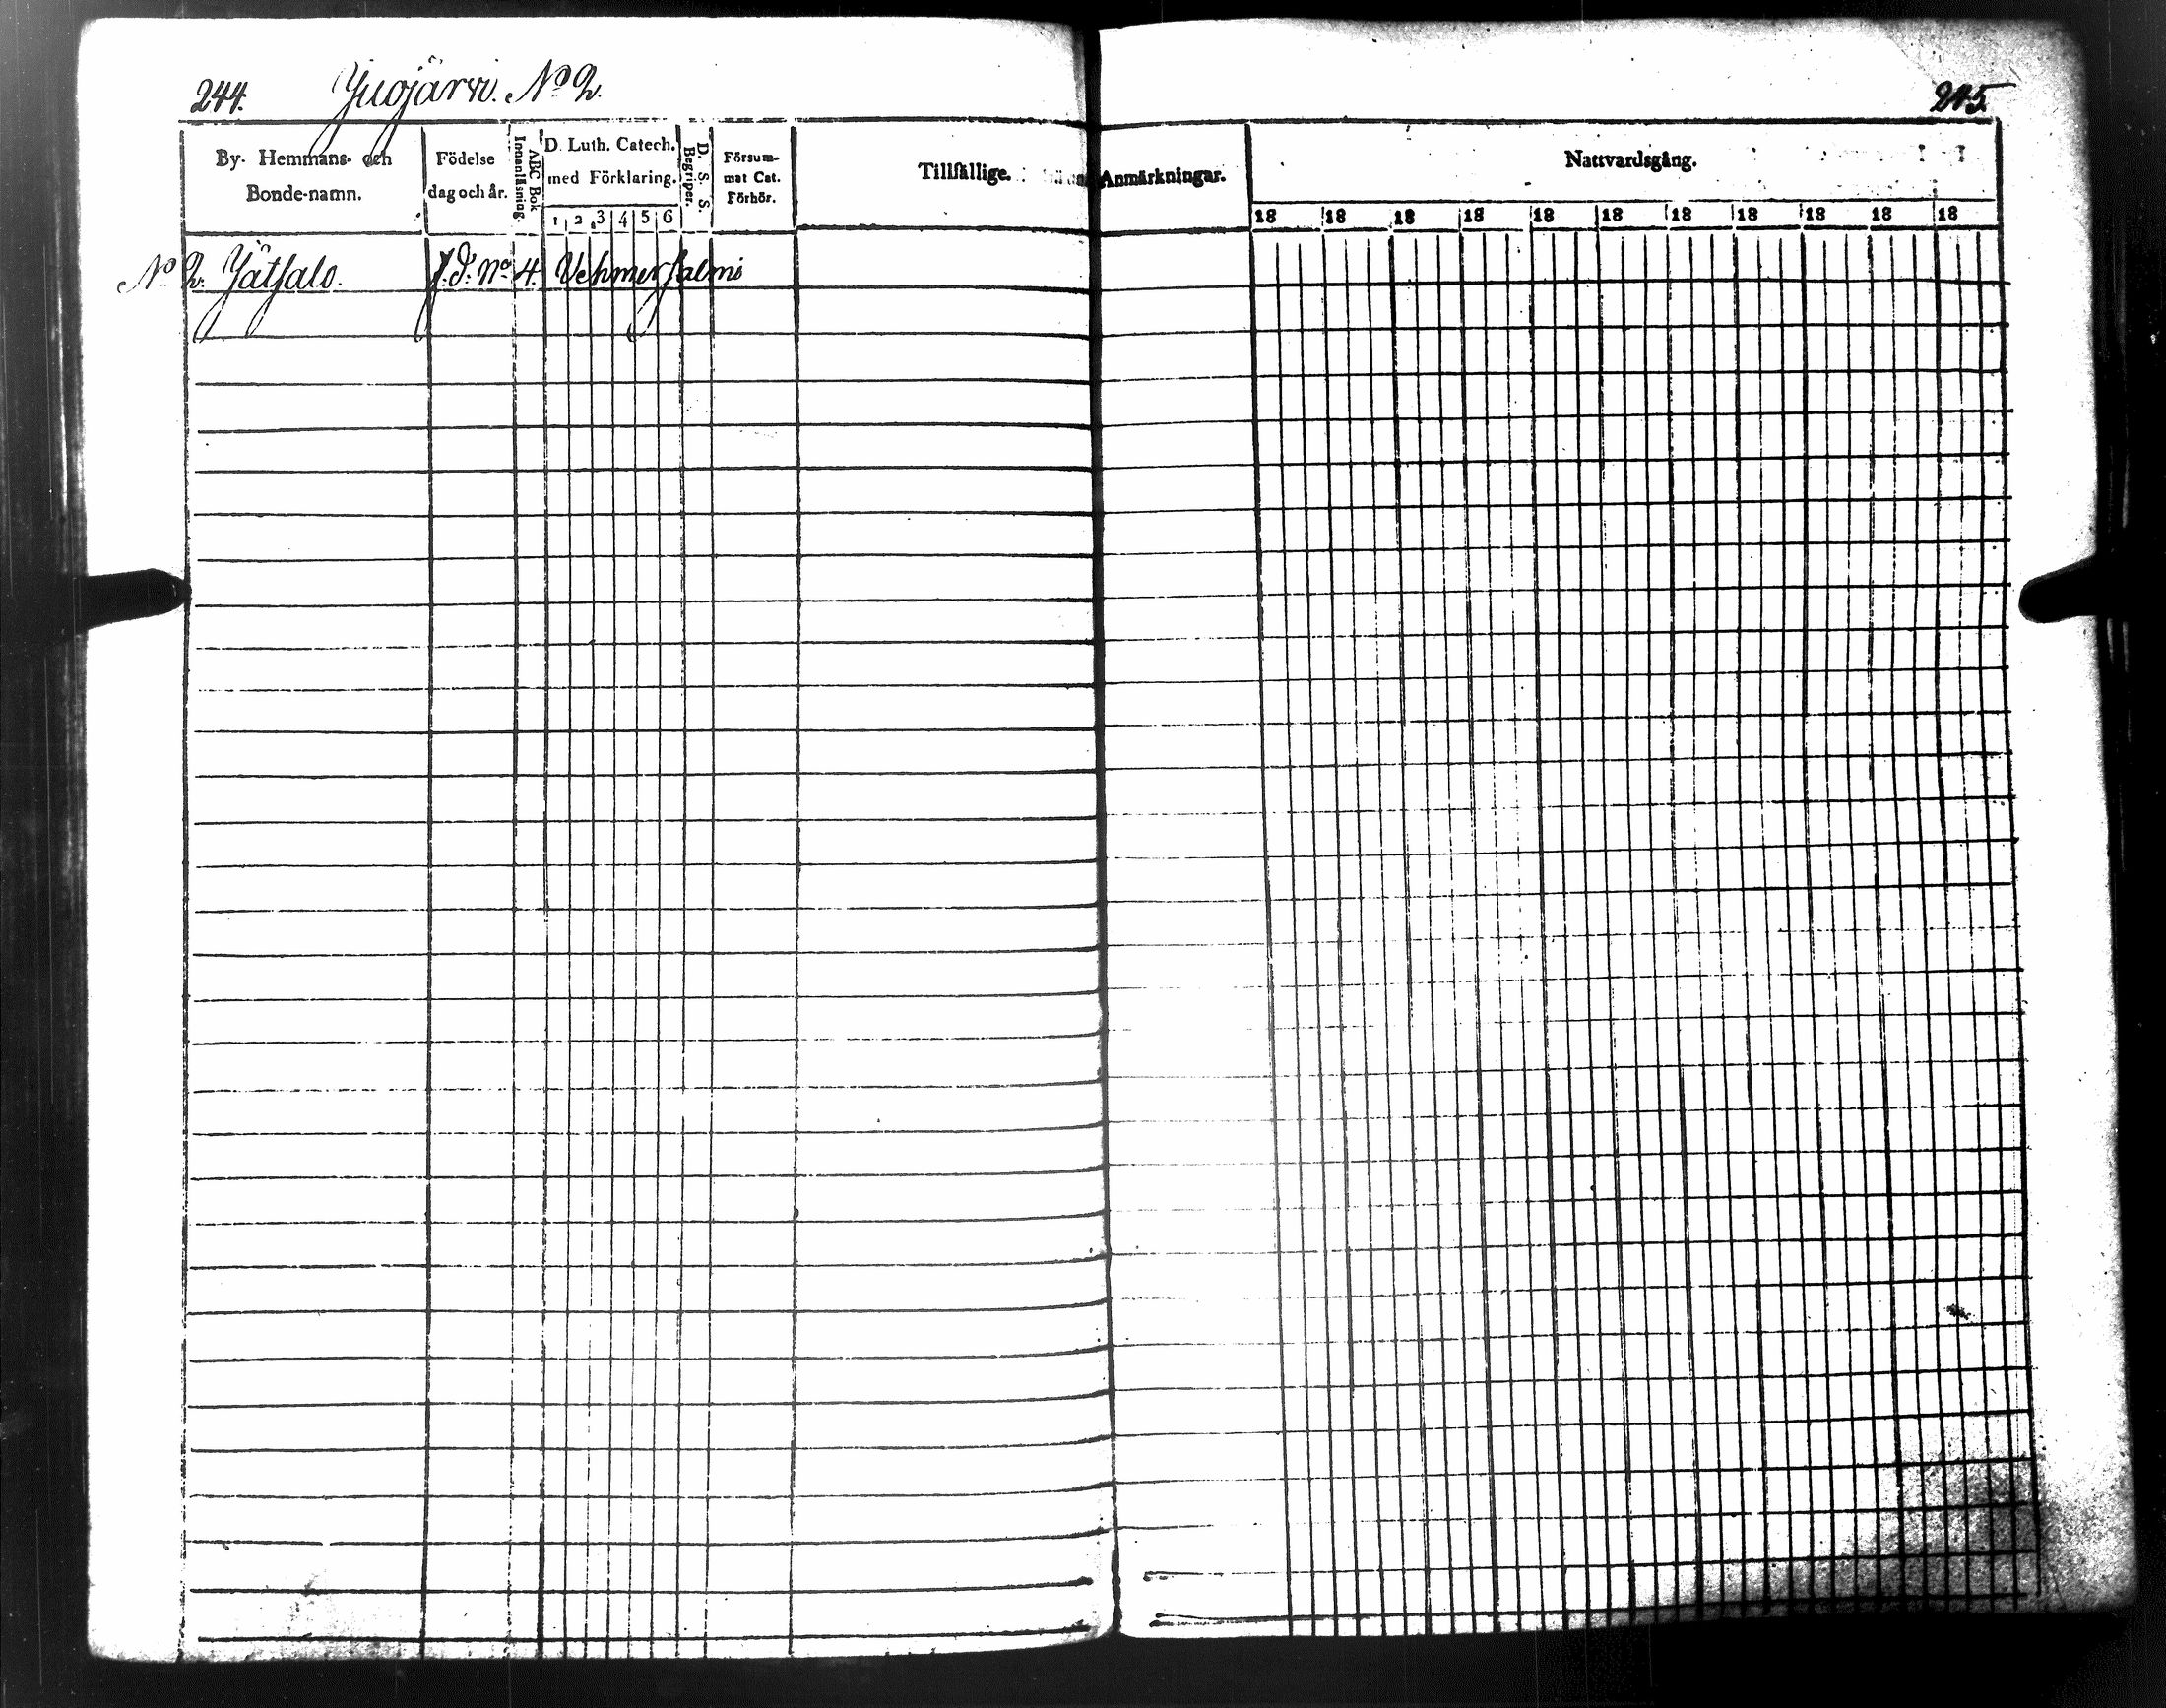 244. Juojärvi. No 2.
245.
By- Hemmans- och Bonde-namn.
Födelse dag och år.
Innanläsning.
ABC Bok
D. Luth. Catech. med Förklaring.
1 2 3 4 5 6
D. S. S. Begriper.
Försum-
mat Cat.
Förhör.
Tillfällige Anmärkningar.
Nattvardsgång.
18 18 18 18 18 18 18 18 18 18 18
No 2. Jätsalo. f.d. No 4. Vehmersalmi